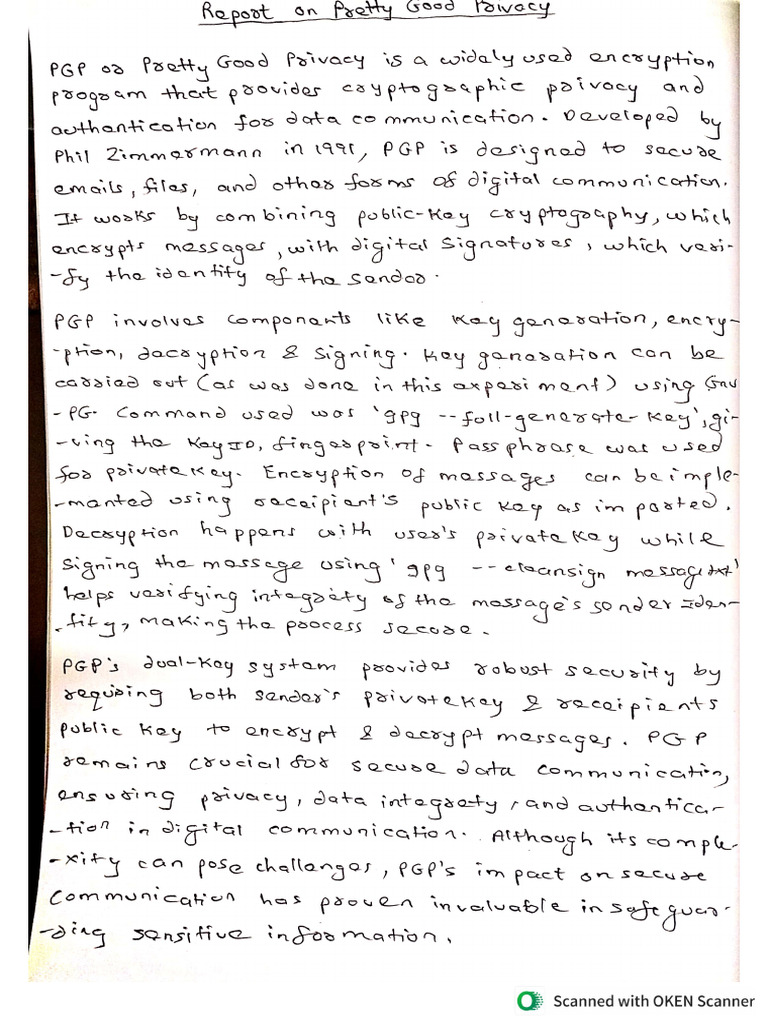 Report on Pretty Good Privacy
PGP or Pretty Good Privacy is a widely used encryption
program that provides cryptographic privacy and
authentication for data communication. Developed by
Phil Zimmermann in 1991, PGP is designed to secure
emails, files, and other forms of digital communication.
It works by combining public-key cryptography, which
encrypts messages, with digital signatures, which veri-
-fy the identity of the sender.
PGP involves components like key generation, encry-
-ption, decryption & signing. Key generation can be
carried out (as was done in this experiment) using Gnu
-PG. Command used was 'gpg --full-generate-key', gi-
-ving the Key ID, fingerprint. Passphrase was used
for private key. Encryption of messages can be imple-
-mented using receipient's public key as imported.
Decryption happens with user's private key while
signing the message using 'gpg --cleansign message.txt'
helps verifying integrety of the message's sender Iden-
-tity, making the process secure.
PGP's dual-key system provides robust security by
requring both sender's private key & receipients
public key to encrypt & decrypt messages. PGP
remains crucial for secure data communication,
ensuring privacy, data integrety, and authentica-
-tion in digital communication. Although its comple-
-xity can pose challenges, PGP's impact on secure
communication has proven invaluable in safeguar-
-ding sensitive information.
Scanned with OKEN Scanner